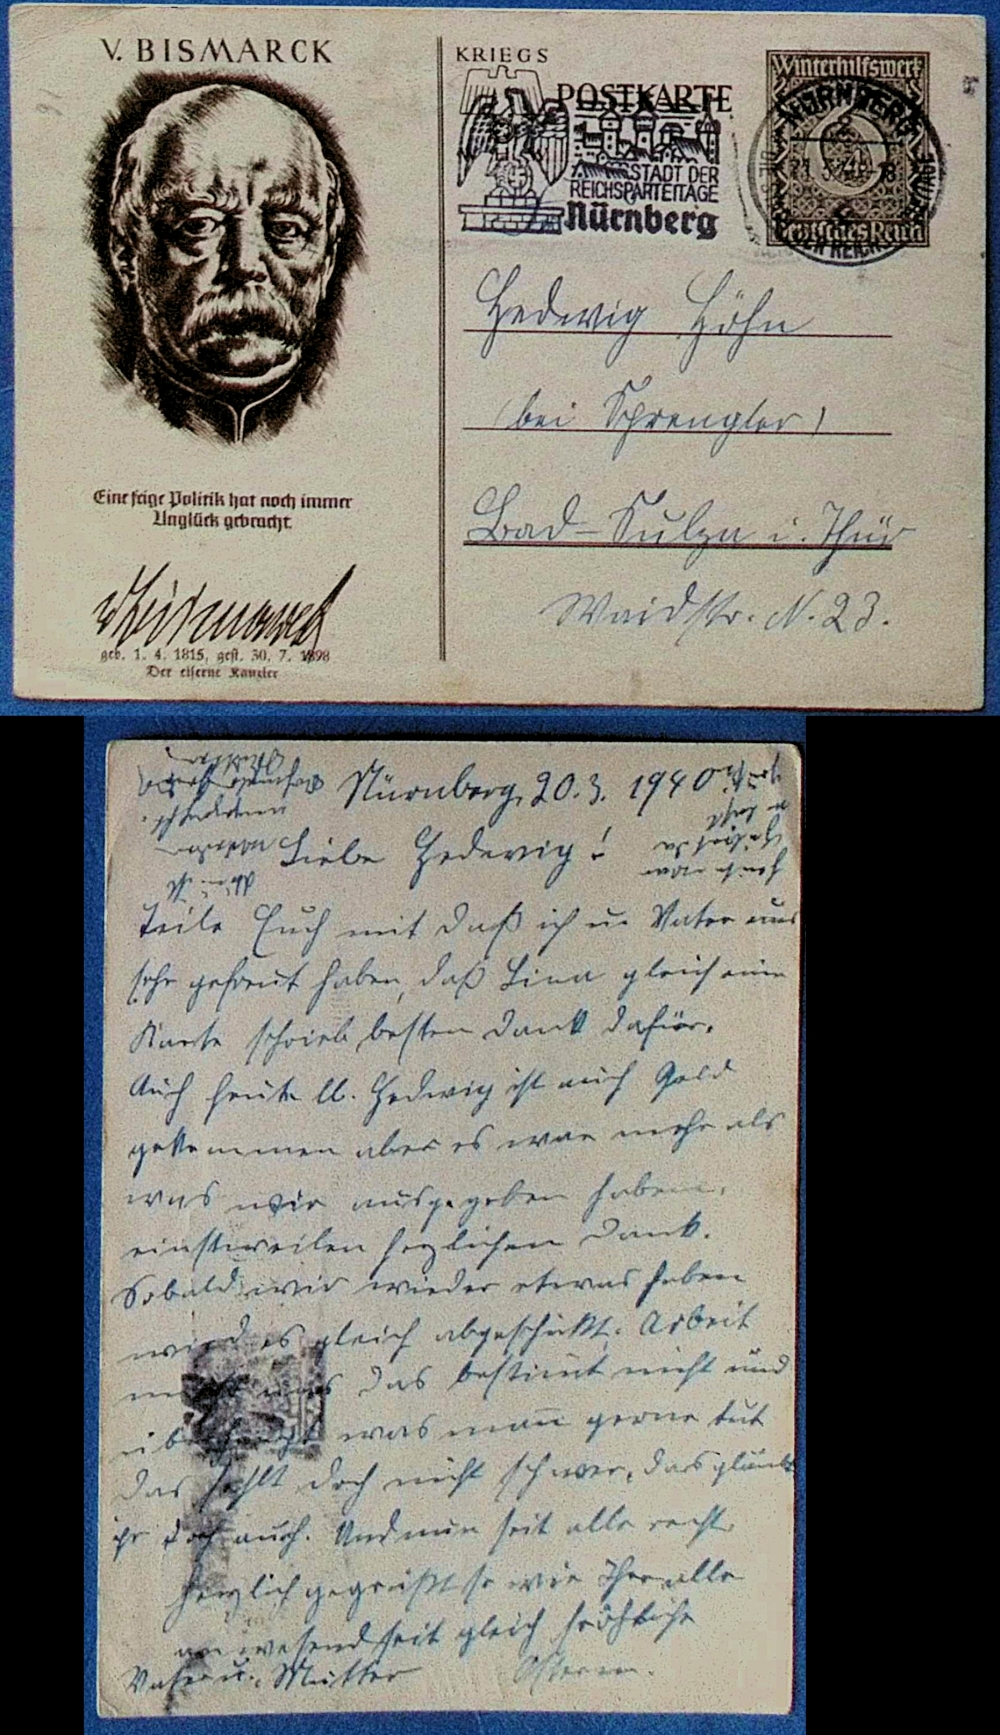 V. BISMARCK
Eine feige Politik hat noch immer
Unglück gebracht.
v Bismarck
geb. 1. 4. 1815, gest. 30. 7. 1898
Der eiserne Kanzler
KRIEGS
POSTKARTE
STADT DER
REICHSPARTEITAGE
Nürnberg
Winterhilfswerk
NÜRNBERG
6
Deutsches Reich
Hedwig Höhn
(bei Sprengler)
Bad-Sulza i. Thür
Waidstr. N. 23.
Nürnberg, 20.3. 1940
Liebe Hedewig!
Teile Euch mit daß ich u. Vater uns
sehr gefreut haben, daß Lina gleich eine
Karte schrieb besten Dank dafür.
Auch heute ll. Hedwig ist auch Geld
gekommen aber es war mehr als
was wir ausgegeben haben.
einstweilen herzlichen Dank.
Sobald wir wieder etwas haben
wird es gleich abgeschickt. Arbeit
macht uns das bestimt nicht und
überhaupt was man gerne tut
das fehlt doch nicht schwer, das glaubt
ihr doch auch. Und nun seit alle recht
herzlich gegrüßt so wie Ihr alle
anwesend seit gleich fröhliche
Vater u. Mutter Ostern.